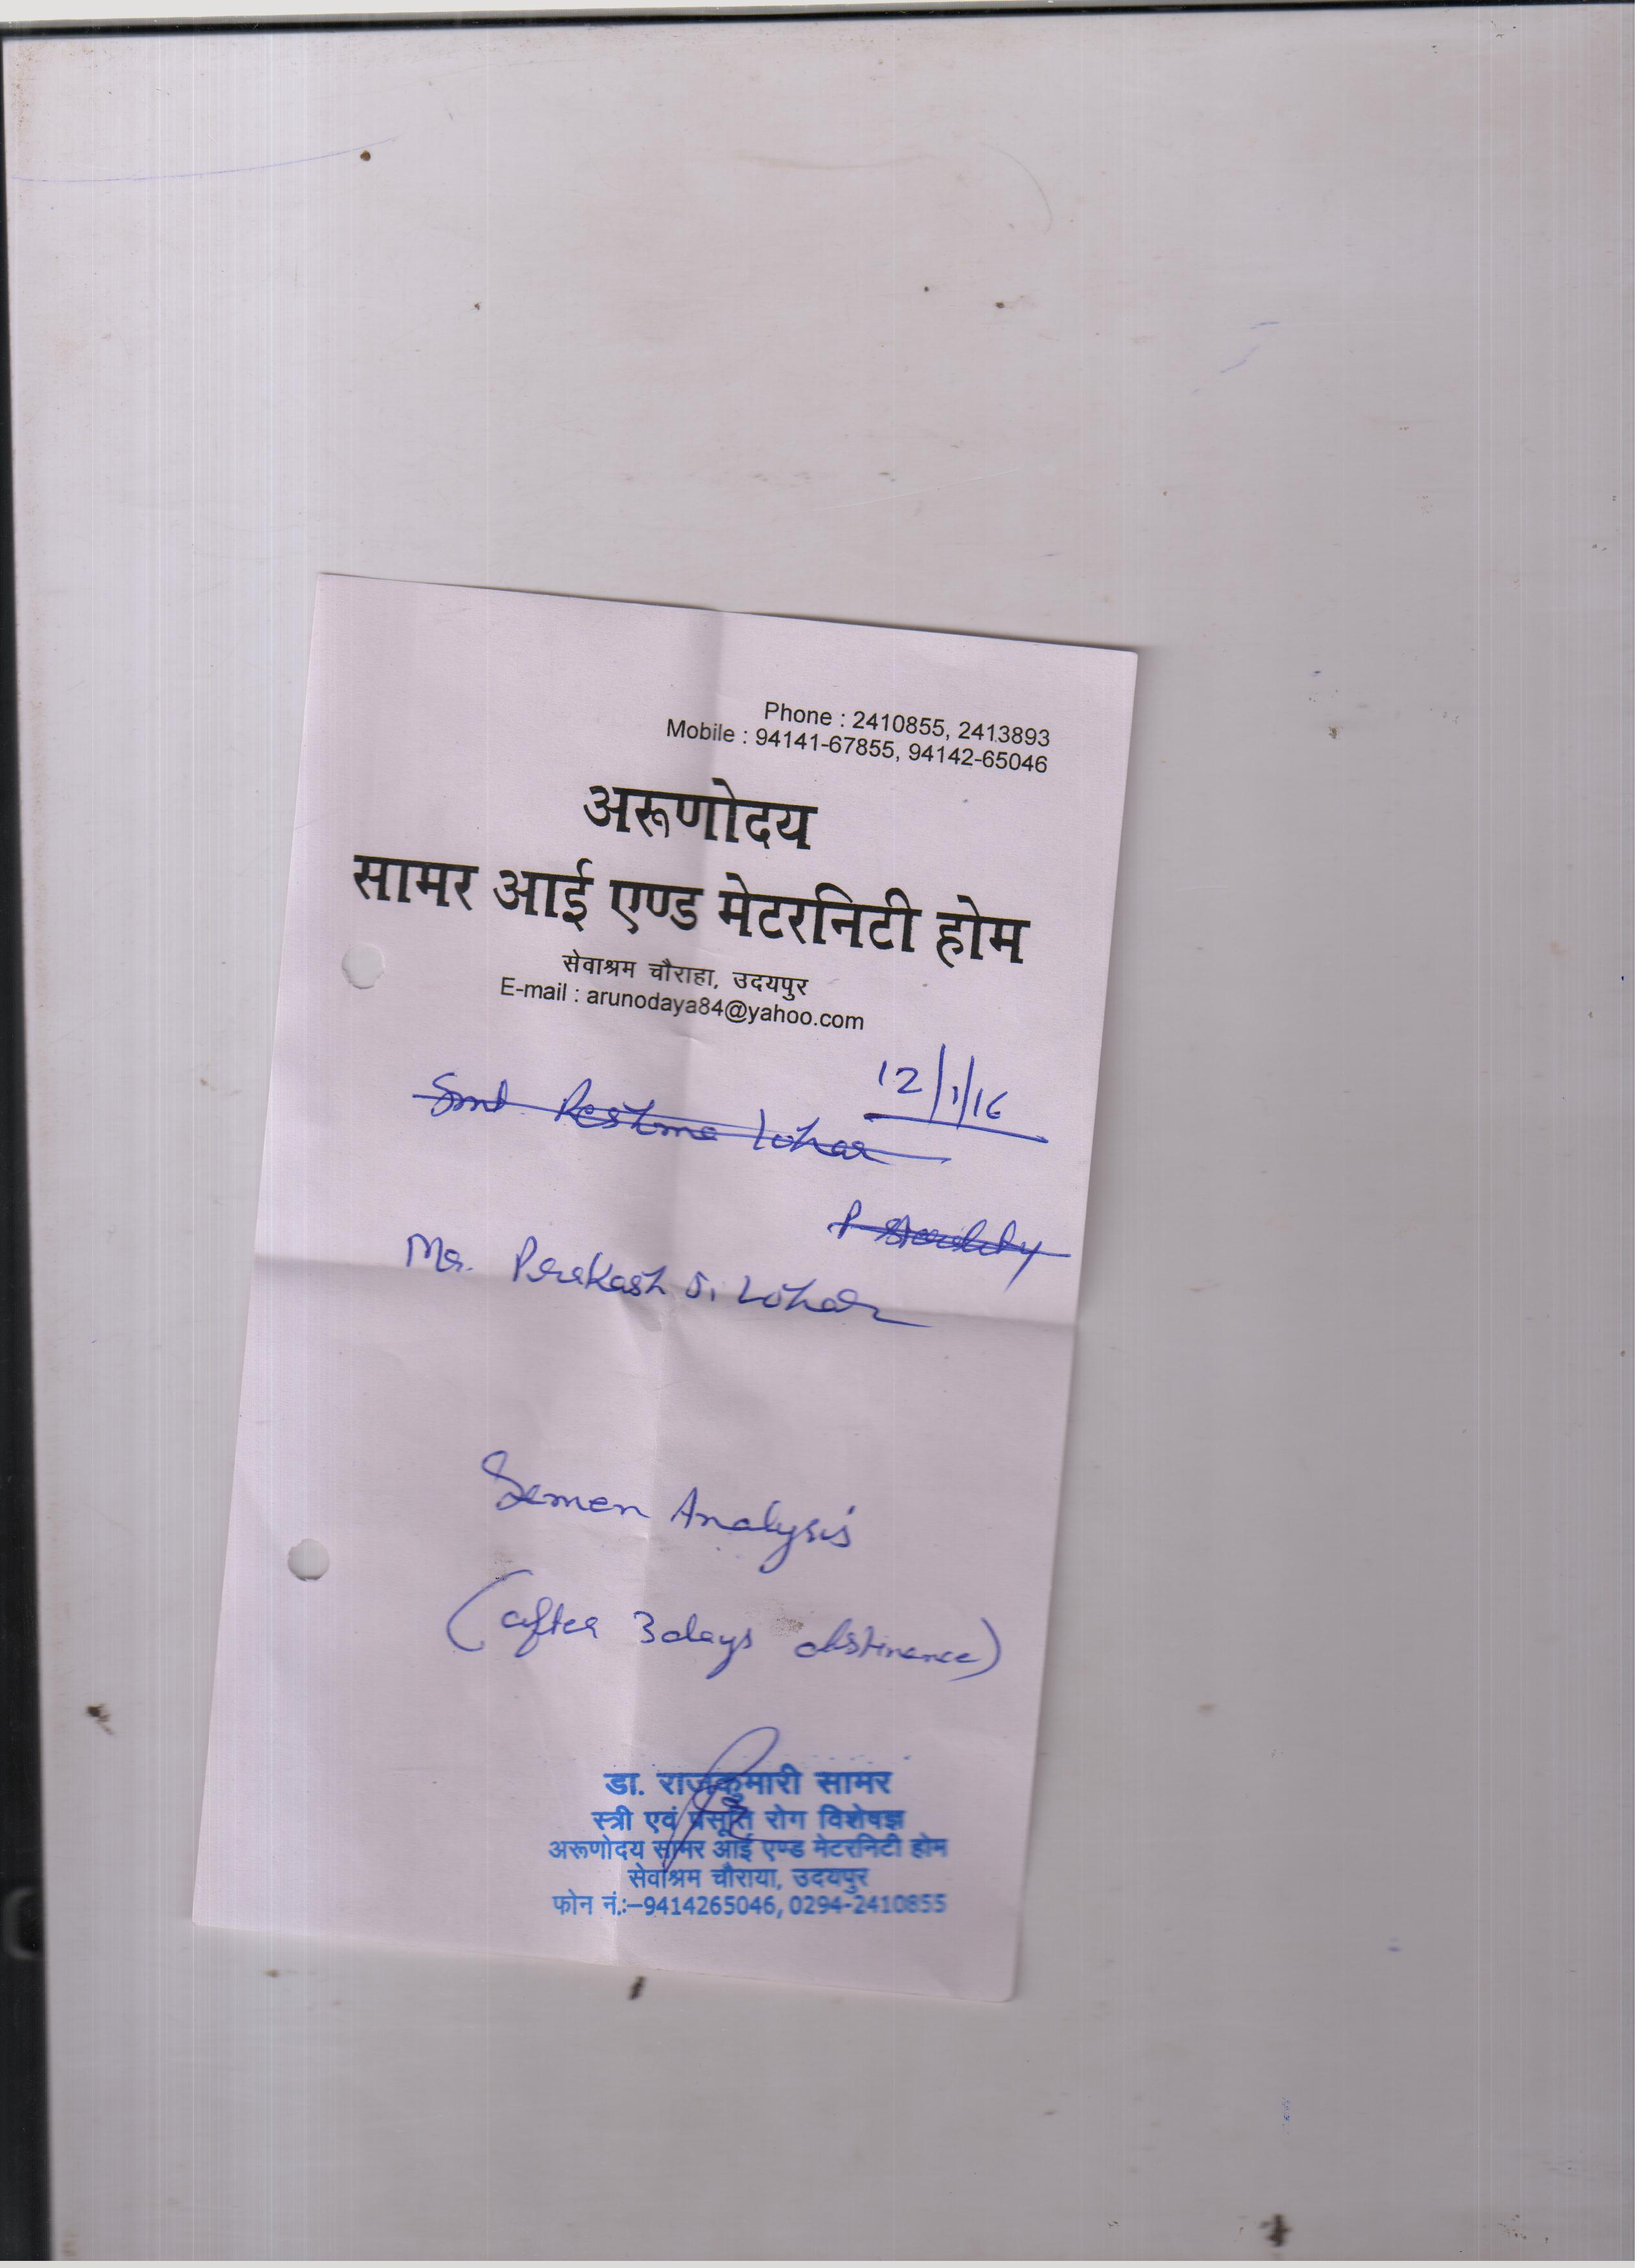 Phone : 2410855, 2413893
Mobile : 94141-67855, 94142-65046
अरूणोदय
सामर आई एण्ड मेटरनिटी होम
सेवाश्रम चौराहा, उदयपुर
E-mail : arunodaya84@yahoo.com
12/1/16
Smt Reshma Lohar
P
Mr. Prakash J. Lohar
Semen Analysis
(after 3 days abstinence)
डा. राजकुमारी सामर
स्त्री एवं प्रसूति रोग विशेषज्ञ
अरूणोदय सामर आई एण्ड मेटरनिटी होम
सेवाश्रम चौराया, उदयपुर
फोन नं.:–9414265046, 0294-2410855